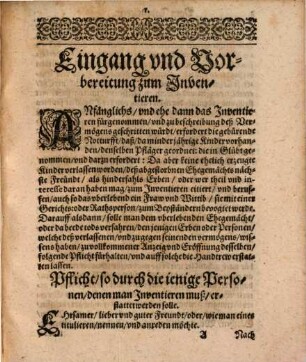 Eingang vnd Vor-
bereitung zum Inven-
tieren.
ANfänglichs / vnd ehe dann das Inventie-
ren fürgenommen / vnd zu beschreibung deß Ver-
mögens geschritten würdt / erfordert die gebürende
Notturfft / daß / da minderjärige Kinder vorhan-
den / denselben Pfläger geordnet / deren Glübt ge-
nommen / vnd darzu erfordert: Da aber keine ehelich erzeugte
Kinder verlassen worden / deß abgestorbnen Ehegemächts näch-
ste Freünd / als hinderlaßne Erben / oder wer sich vnd in-
teresse daran haben mag / zum Inventieren citiert / vnd beruf-
fen / auch so da vberlebend ein Fraw vnd Wittib / sie mit eines
Gerichts oder Raths person / zum Beyständer bevogtet werde.
Darauff alsdann / solle man dem vberlebenden Ehegemächt /
oder da beede tods verfahren / den jenigen Erben oder Personen /
welche deß verlassenen / vnd zugegen seienden vermögens / wis-
sens haben / zu vollkommener Anzeig vnd Eröffnung desselben /
folgende Pflicht fürhalten / vnd auff solche die Handtrew erstat-
ten lassen.
Pflicht / so durch die jenige Perso-
nen / denen man Inventieren muß / er-
stattet werden solle.
EHrsamer / lieber vnd guter Freund / oder / wie man eines
titulieren / nennen / vnd anreden möchte.
A Nach